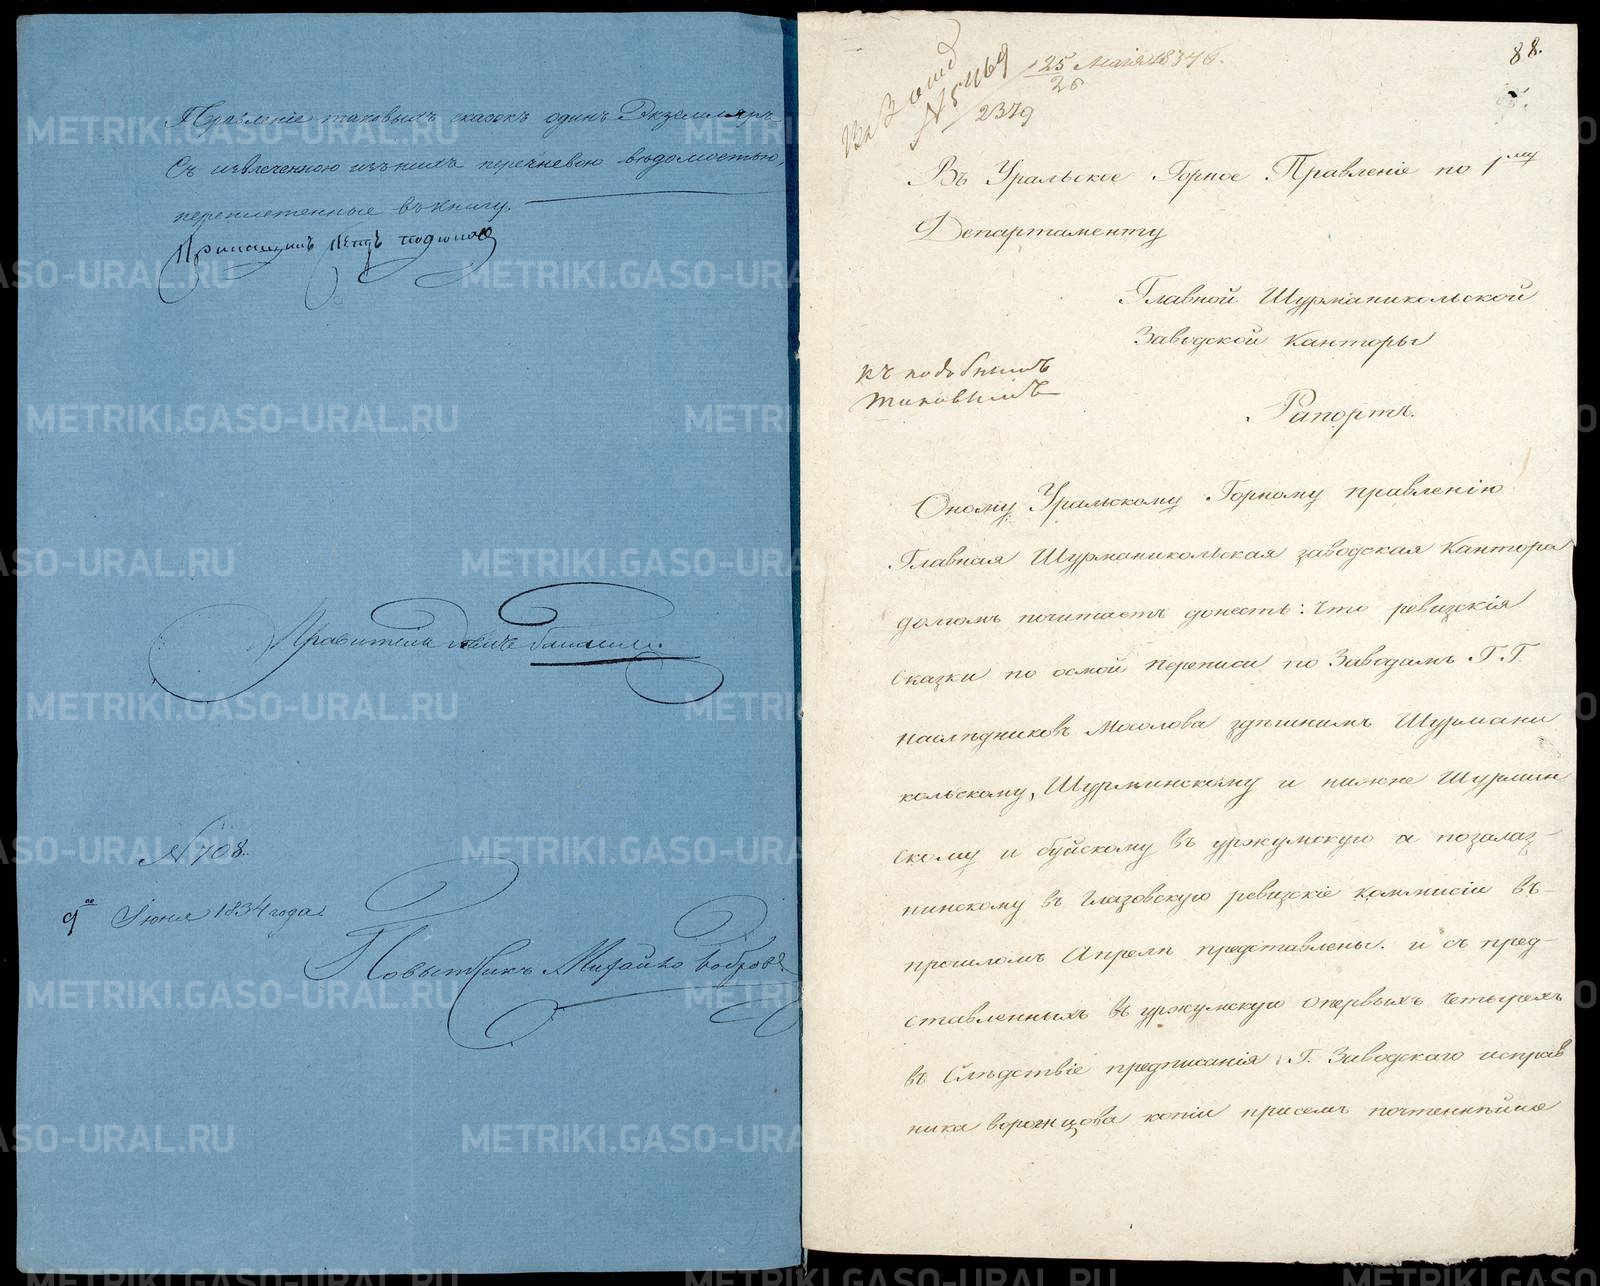 Правленiе таковыхъ сказокъ одинъ Экземпляръ
Съ извлеченною изъ нихъ перечневою вѣдомостью,
переплетенные въ книгу.
Прикащикъ Петръ
Правитель
№ 708.
9го Iюня 1834 года.
Повытчикъ Михайло Бобровъ
88.
№ 5469
25 Маiя 1834 г.
26
2379
Въ Уральское Горное Правленiе по 1му
Департаменту
Главной Шурманикольской
Заводской Канторы
къ подобнымъ
таковымъ
Рапортъ.
Оному Уральскому Горному правленiю
Главная Шурманикольская заводская Кантора
долгомъ почитаетъ донесть: что ревизскiя
Сказки по осмой переписи по Заводамъ Г.Г.
наслѣдниковъ Мосолова здѣшнимъ Шурмани
кольскому, Шурминскому и нижне Шурмин
скому и буйскому въ уржумскую а позалаз-
нинскому въ Глазовскую ревизскiе коммисiи въ-
прошломъ Апрелѣ представлены. и съ пред-
ставленныхъ въ уржумскую опервыхъ четырехъ
въ Слѣдствiе предписанiя Г. Заводскаго исправ
ника воронцова копiи присемъ почтеннѣйше
METRIKI.GASO-URAL.RU